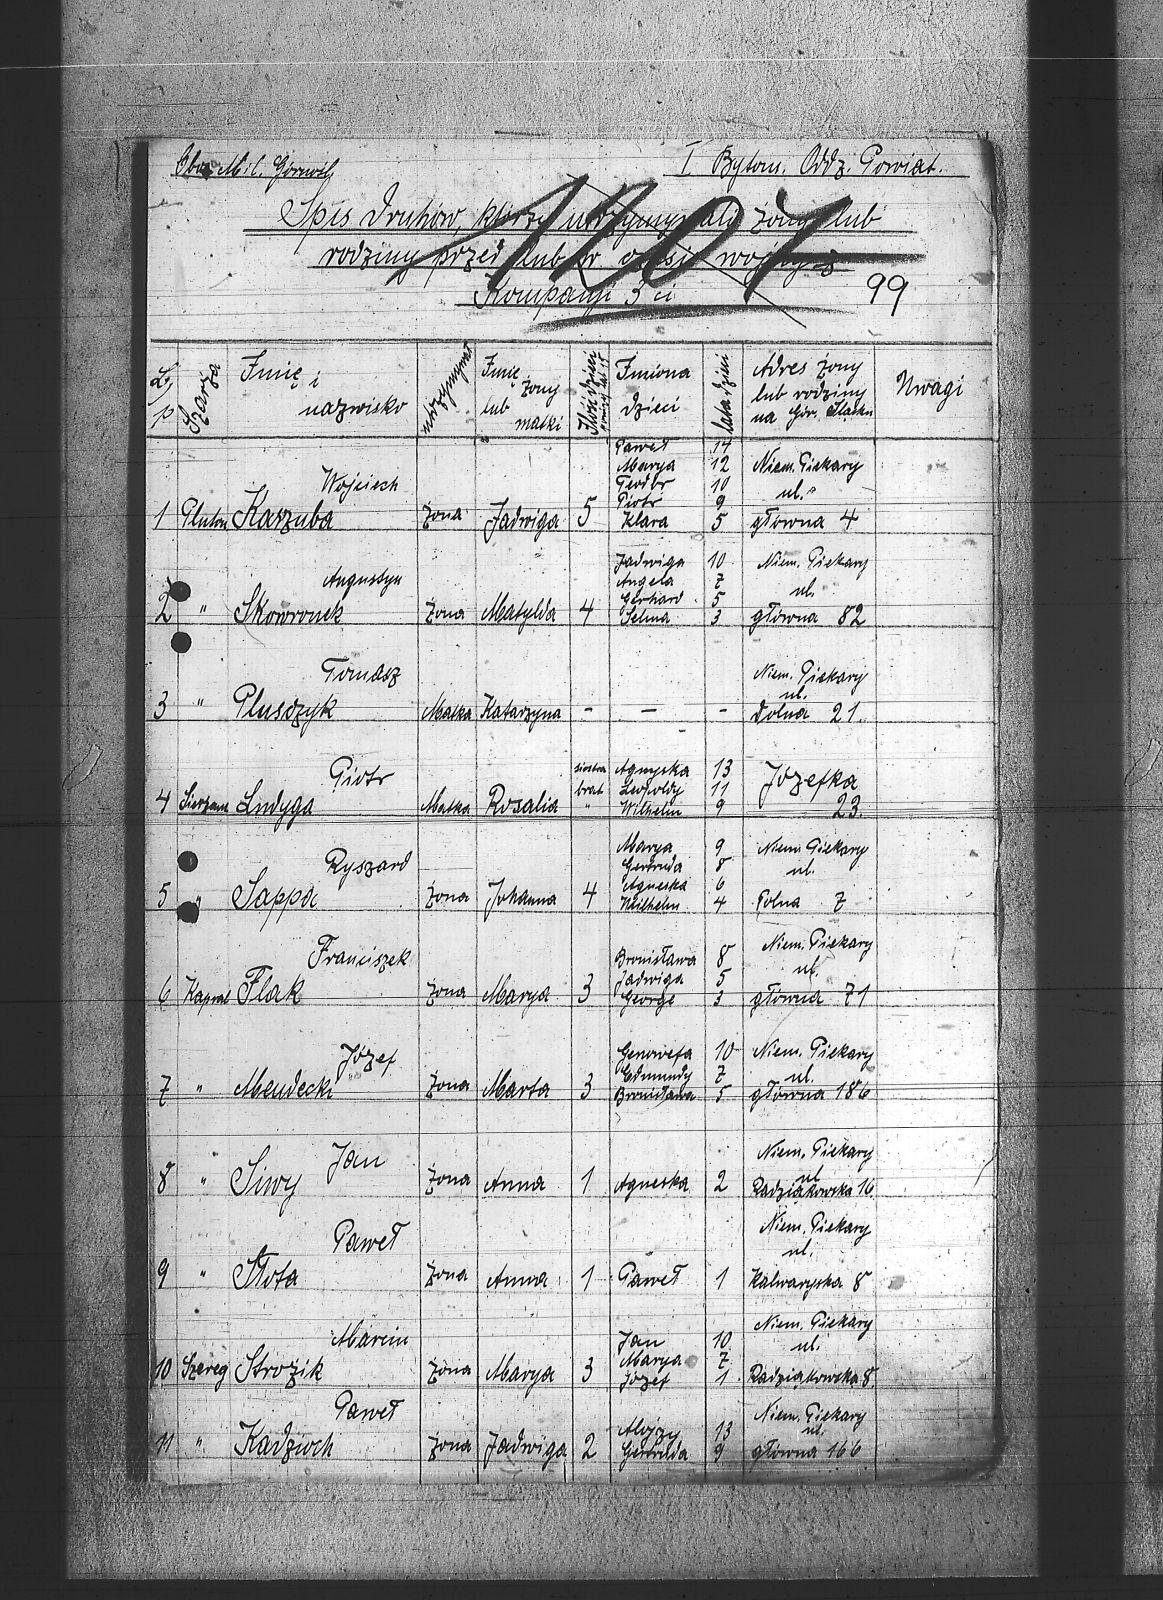 Oboz Mil. Górnośl. I Bytom. Oddz. Powiat.
Spis Druhów, którzy utrzymywali żony lub
rodziny przed lub w czasie wojny z
Kompanji 3 ci
1201
99
L. p. Szarża Imię i nazwisko utrzymywał Imię żony lub matki Ilość dzieci Imiona dzieci lata dzieci Adres żony lub rodziny na Gór. Śląsku Uwagi
Paweł 14
Marya 12 Niem. Piekary
Wojciech Teodor 10 ul.
Piotr 9
1 Pluton Kaszuba żona Jadwiga 5 Klara 5 główna 4
Jadwiga 10 Niem. Piekary
Augustyn Angela 7
Gerhard 5 ul.
2 " Skowronek żona Matylda 4 Selma 3 główna 82
Tomasz Niem. Piekary
ul.
3 " Plusczyk Matka Katarzyna - - - Dolna 21.
Piotr siostra Agnyska 13 Józefka
brat Leopoldy 11
4 Sierzant Ludyga Matka Rosalia " Wilhelm 9 23.
Marya 9 Niem. Piekary
Ryszard Gertruda 8 ul.
Agneska 6
5 " Sappa żona Johanna 4 Wilhelm 4 Polna 7
Franciszek Bronisława 8 Niem. Piekary
Jadwiga 5 ul.
6 Kapral Flak żona Marya 3 George 3 główna 71
Józef Genowefa 10 Niem. Piekary
Edmundy 7 ul.
7 " Mendecki żona Marta 3 Bronisława 5 główna 186
Jan Niem. Piekary
ul.
8 " Siwy żona Anna 1 Agneska 2 Radziąkowska 16.
Paweł Niem. Piekary
ul.
9 " Słota żona Anna 1 Paweł 1 Kalwaryska 8
Marcin Jan 10 Niem. Piekary
Marya 7 ul.
10 Szereg Strozik żona Marya 3 Józef 1 Radziąkowska 8.
Paweł Niem. Piekary
Alojzy 13 ul.
11 " Kadzioch żona Jadwiga 2 Gertruda 9 główna 166